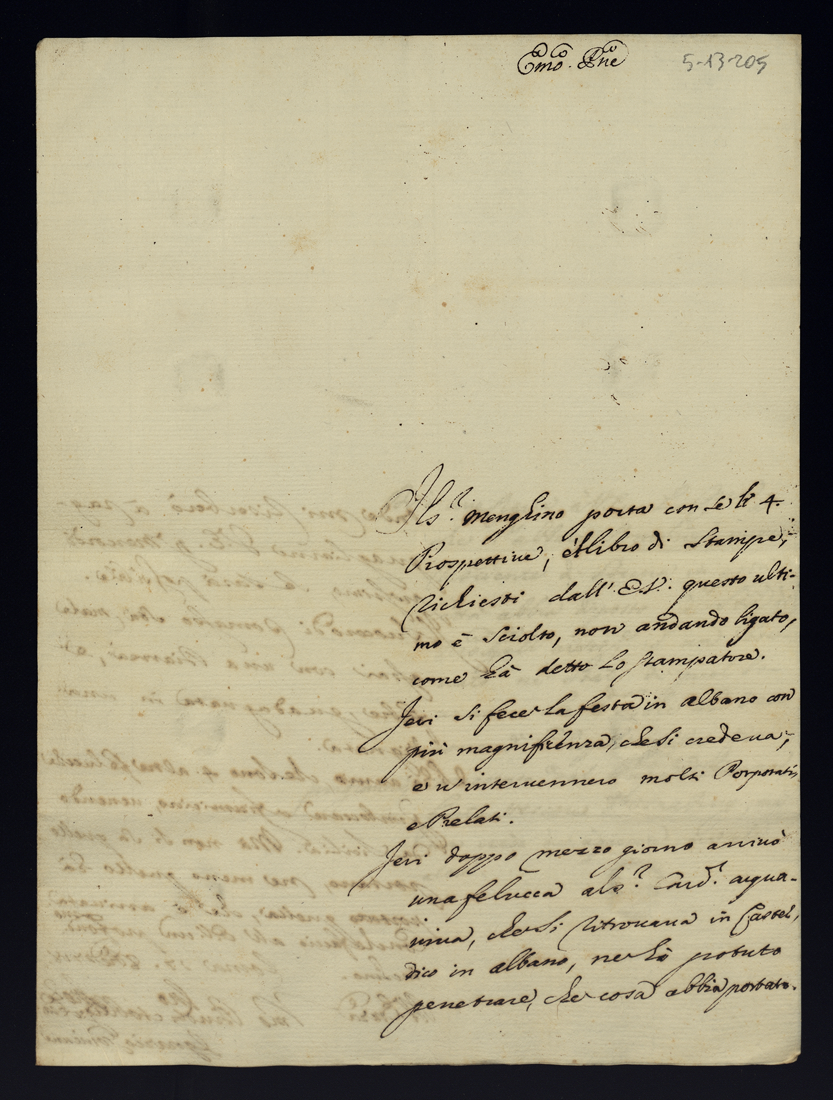 Emo. Pne
5-13-205
Il S.r Menghino porta con se li 4.
Prospettive, e'l libro di Stampe,
richiesti dall' E.V. questo ulti-
mo è sciolto, non andando ligato,
come hà detto lo stampatore.
Jeri si fece la festa in albano con
più magnificenza, che si credeva,
e v'intervennero molti Porporati,
e Prelati.
Jeri doppo mezzo giorno arrivò
una felucca al S.r Card.l acqua-
viva, che si ritrovava in Castel,
dico in albano, ne hò potuto
penetrare, che cosa abbia portato.